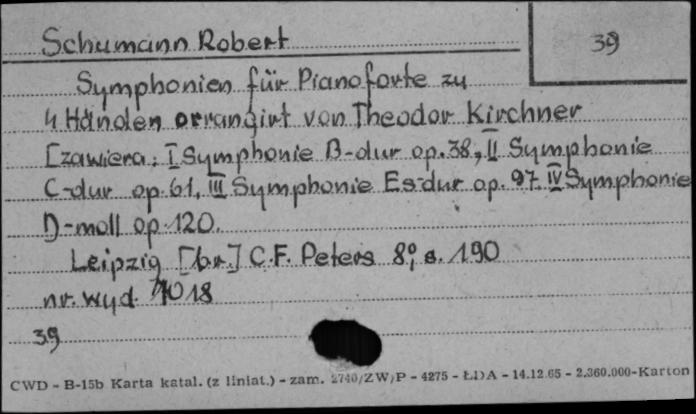 Schumann Robert
39
Symphonien für Pianoforte zu
4 Händen arrangirt von Theodor Kirchner
[zawiera: I Symphonie B-dur op. 38, II Symphonie
C-dur op. 61, III Symphonie Es-dur op. 97. IV Symphonie
D-moll op. 120.
Leipzig [br.] C.F. Peters 8°, s. 190
nr. wyd.
39
CWD - B-15b Karta katal. (z liniat.) - zam. 2740/ZW/P - 4275 - ŁDA - 14.12.65 - 2.360.000-Karton